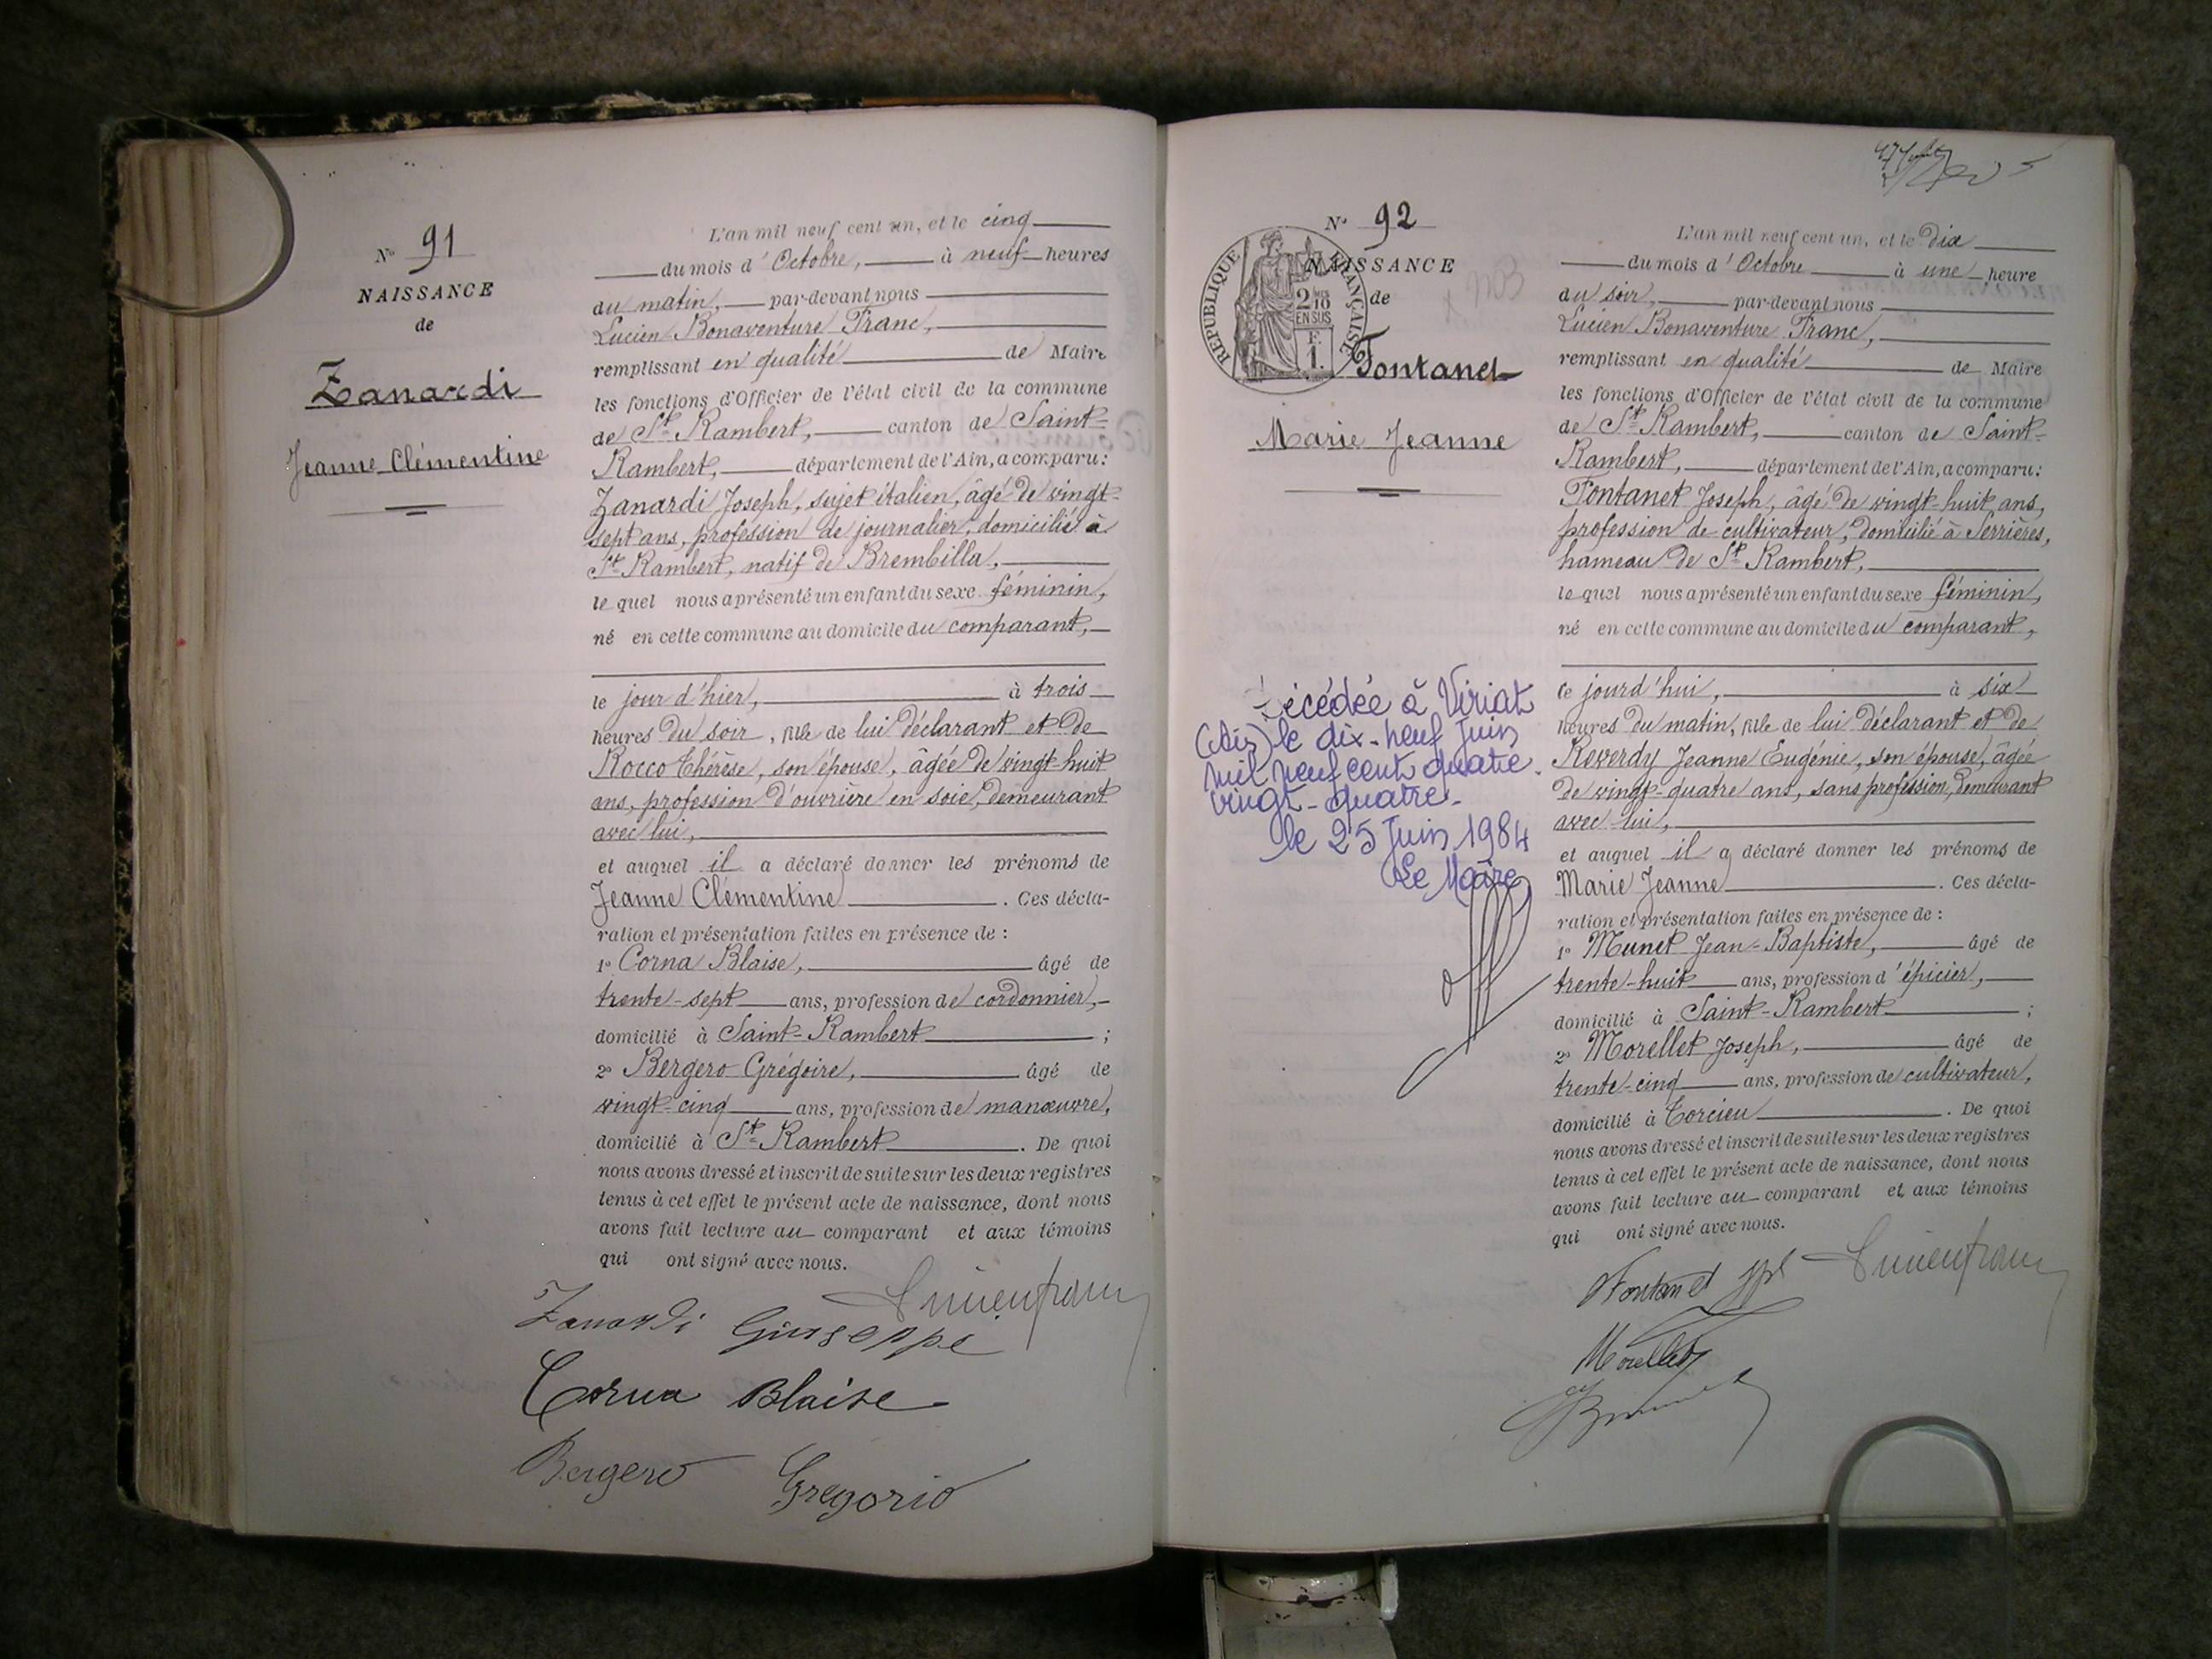 N° 91
NAISSANCE
de
Zanardi
Jeanne Clémentine
L'an mil neuf cent un, et le cinq
du mois d'Octobre, à neuf heures
du matin, par-devant nous
Lucien Bonaventure Franc,
remplissant en qualité de Maire
les fonctions d'Officier de l'état civil de la commune
de St Rambert, canton de Saint-
Rambert, département de l'Ain, a comparu:
Zanardi Joseph, sujet italien, âgé de vingt-
sept ans, profession de journalier, domicilié à
St Rambert, natif de Brembilla,
le quel nous a présenté un enfant du sexe féminin,
né en cette commune au domicile du comparant,
le jour d'hier, à trois
heures du soir, fille de lui déclarant et de
Rocco Thérèse, son épouse, âgée de vingt-huit
ans, profession d'ouvrière en soie, demeurant
avec lui,
et auquel il a déclaré donner les prénoms de
Jeanne Clémentine. Ces décla-
ration et présentation faites en présence de :
1° Corna Blaise, âgé de
trente-sept ans, profession de cordonnier,
domicilié à Saint-Rambert ;
2° Bergero Grégoire, âgé de
vingt-cinq ans, profession de manœuvre,
domicilié à St Rambert. De quoi
nous avons dressé et inscrit de suite sur les deux registres
tenus à cet effet le présent acte de naissance, dont nous
avons fait lecture au comparant et aux témoins
qui ont signé avec nous.
Lucien franc
Zanardi Giuseppe
Corna Blaise
Bergero Gregorio
N° 92
NAISSANCE
de
REPUBLIQUE FRANÇAISE
2/10 EN SUS
F. 1.
Fontanet
Marie Jeanne
L'an mil neuf cent un, et le dix
du mois d'Octobre à une heure
du soir, par-devant nous
Lucien Bonaventure Franc,
remplissant en qualité de Maire
les fonctions d'Officier de l'état civil de la commune
de St Rambert, canton de Saint-
Rambert, département de l'Ain, a comparu:
Fontanet Joseph, âgé de vingt-huit ans,
profession de cultivateur, domicilié à Serrières,
hameau de St Rambert,
le quel nous a présenté un enfant du sexe féminin,
né en cette commune au domicile du comparant,
ce jourd'hui, à six
heures du matin, fille de lui déclarant et de
Reverdy Jeanne Eugénie, son épouse, âgée
de vingt-quatre ans, sans profession, demeurant
avec lui,
et auquel il a déclaré donner les prénoms de
Marie Jeanne. Ces décla-
ration et présentation faites en présence de :
1° Munet Jean-Baptiste, âgé de
trente-huit ans, profession d'épicier,
domicilié à Saint-Rambert ;
2° Morellet Joseph, âgé de
trente-cinq ans, profession de cultivateur,
domicilié à Torcieu. De quoi
nous avons dressé et inscrit de suite sur les deux registres
tenus à cet effet le présent acte de naissance, dont nous
avons fait lecture au comparant et aux témoins
qui ont signé avec nous.
Décédée à Viriat
(Ain) le dix-neuf Juin
mil neuf cent quatre-
vingt-quatre.
le 25 Juin 1984
Le Maire
Fontanet Jph
Lucien franc
Morellet